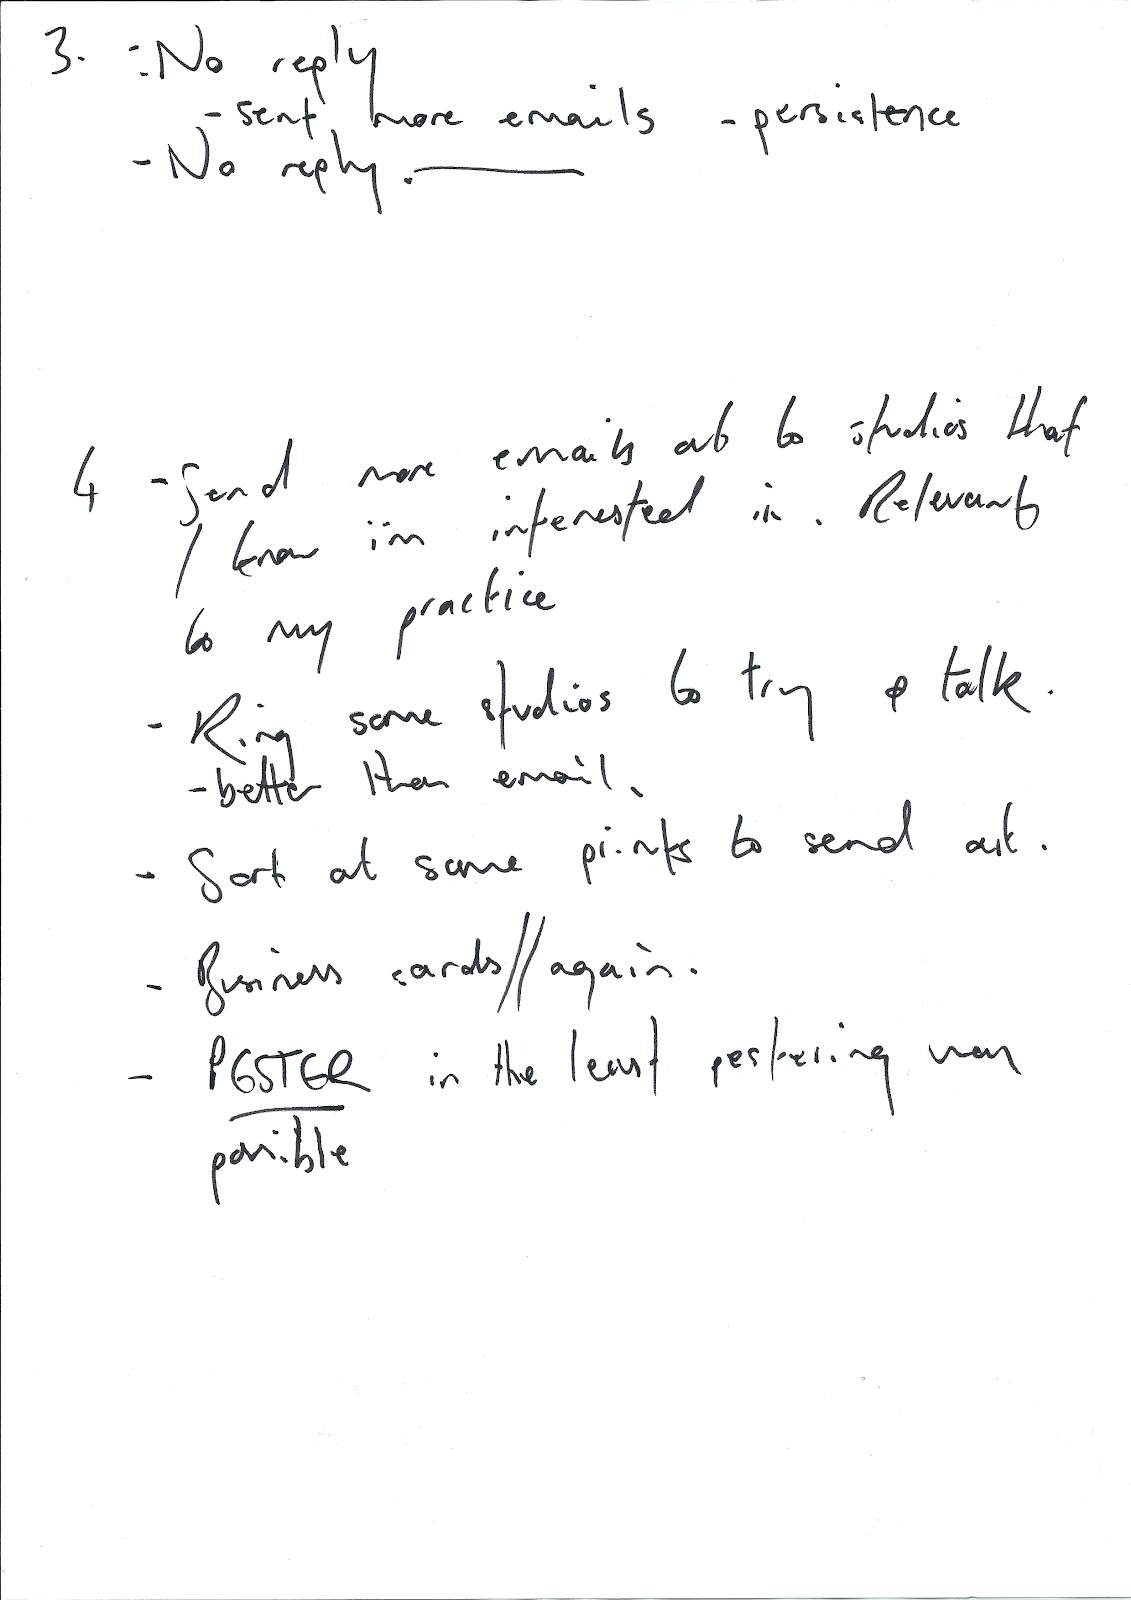 3. - No reply
- sent more emails - persistence
- No reply.
4 - Send more emails out to studios that
I know i'm interested in. Relevant
to my practice
- Ring some studios to try & talk.
- better than email.
- Sort out some prints to send out.
- Business cards // again.
- PESTER in the least pestering way
possible